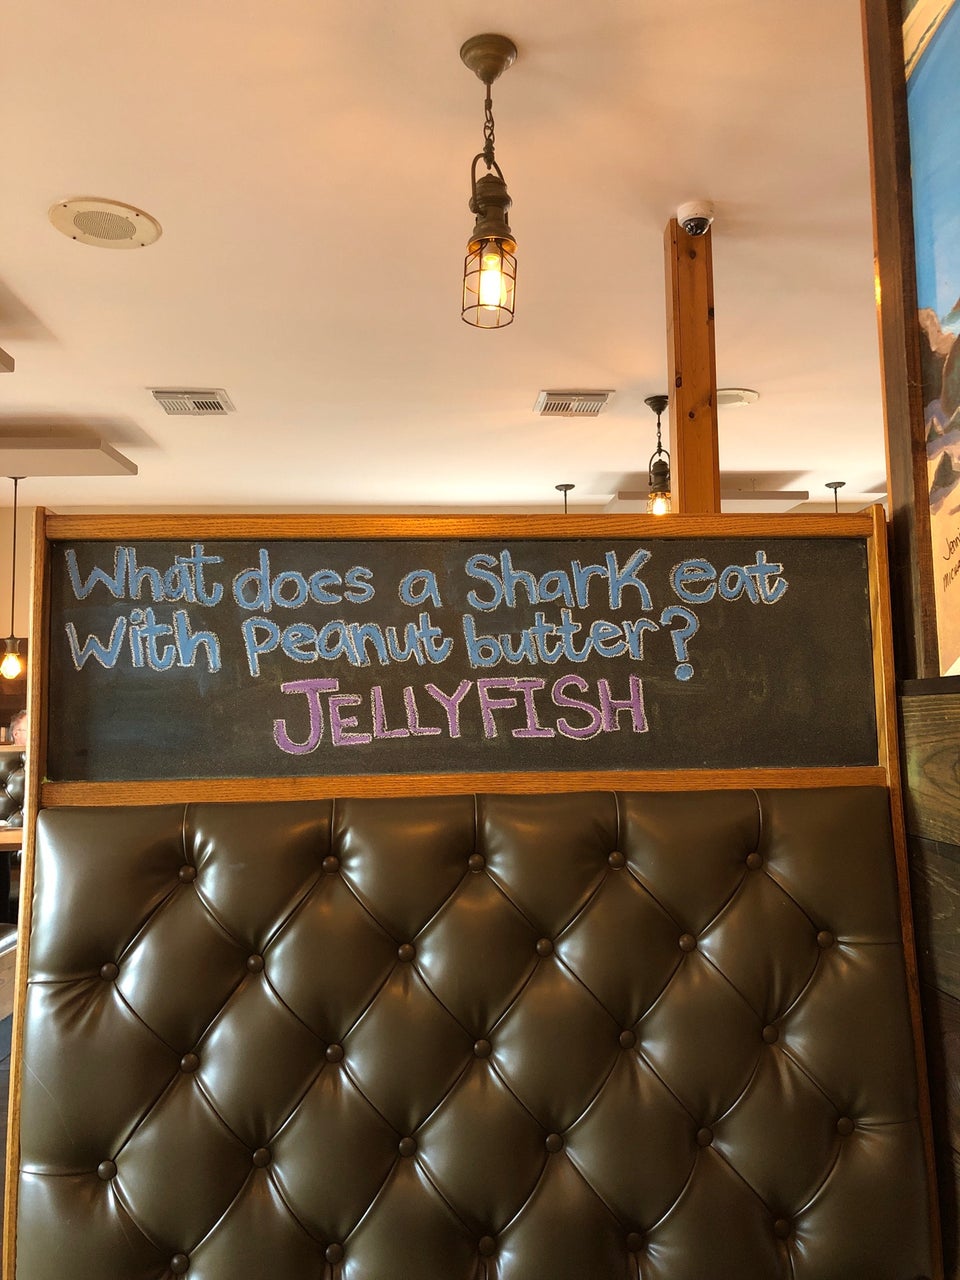 What does a Shark eat
With peanut butter?
JELLYFISH